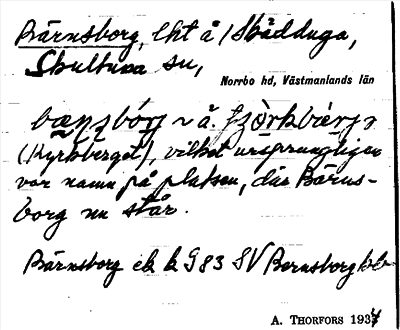 Bärnsborg, lht å /Skädduga,
Skultuna sn,
Norrbo hd, Västmanlands län
bæṇṣbórj ~ å.
(Kyrkberget), vilket ursprungligen
var namn på platsen, där Bärns-
borg nu står.
Bärnsborg ek k G83 SV Bernsborg
A. THORFORS 1934